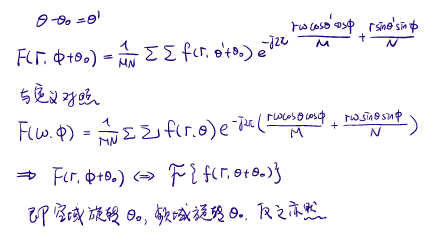 θ-θ₀=θ'
F(r,ϕ+θ₀)=1/MN ΣΣ f(r,θ'+θ₀) e^-j2π rωcosθ'cosϕ/M + rsinθ'sinϕ/N
与定义对照
F(ω.ϕ)=1/MN ΣΣ f(r,θ) e^-j2π(rωcosθcosϕ/M + rω.sinθsinϕ/N)
⇒ F(r,ϕ+θ₀) ⇔ F{f(r,θ+θ₀)}
即空域旋转θ₀,频域旋转θ₀,反之亦然